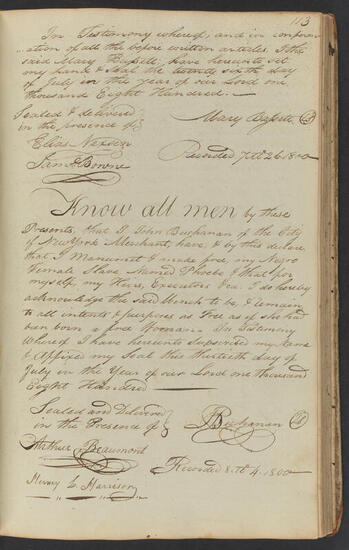 113
In Testimony whereof and in confirm-
ation of all the before written articles I the
said Mary have hereunto set
my hand & Seal the twenty sixth day
of July in the year of our Lord one
thousand Eight Hundred.
Sealed & delivered
in the presence of
Mary
Elias Nexsen
Recorded 7th 26. 1800
Jam. Bowne
Know all men by these
Presents, that I John Buchanan of the City
of New York Merchant, have, & by this declare
that I Manumit & made free, my Negro
Female Slave Named Phoebe & that for
myself, my Heirs, Executors &ca. I do hereby
acknowledge the said Wench to be, & remain
to all intents & purposes as Free as if she had
been born a free Woman. In Testimony
Whereof I have hereunto Subscribed my Name
& Affixed my Seal this thirtieth day of
July in the Year of our Lord one thousand
Eight Hundred
Sealed and Delivered
in the Presence of
Buchanan
Arthur Beaumont
Recorded 8. th 4. 1800
Henry L. Harrison